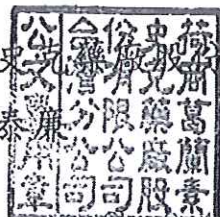 荷商葛蘭素
史克藥廠股
份有限公司
台灣分公司
公文專用章
史
泰 廉